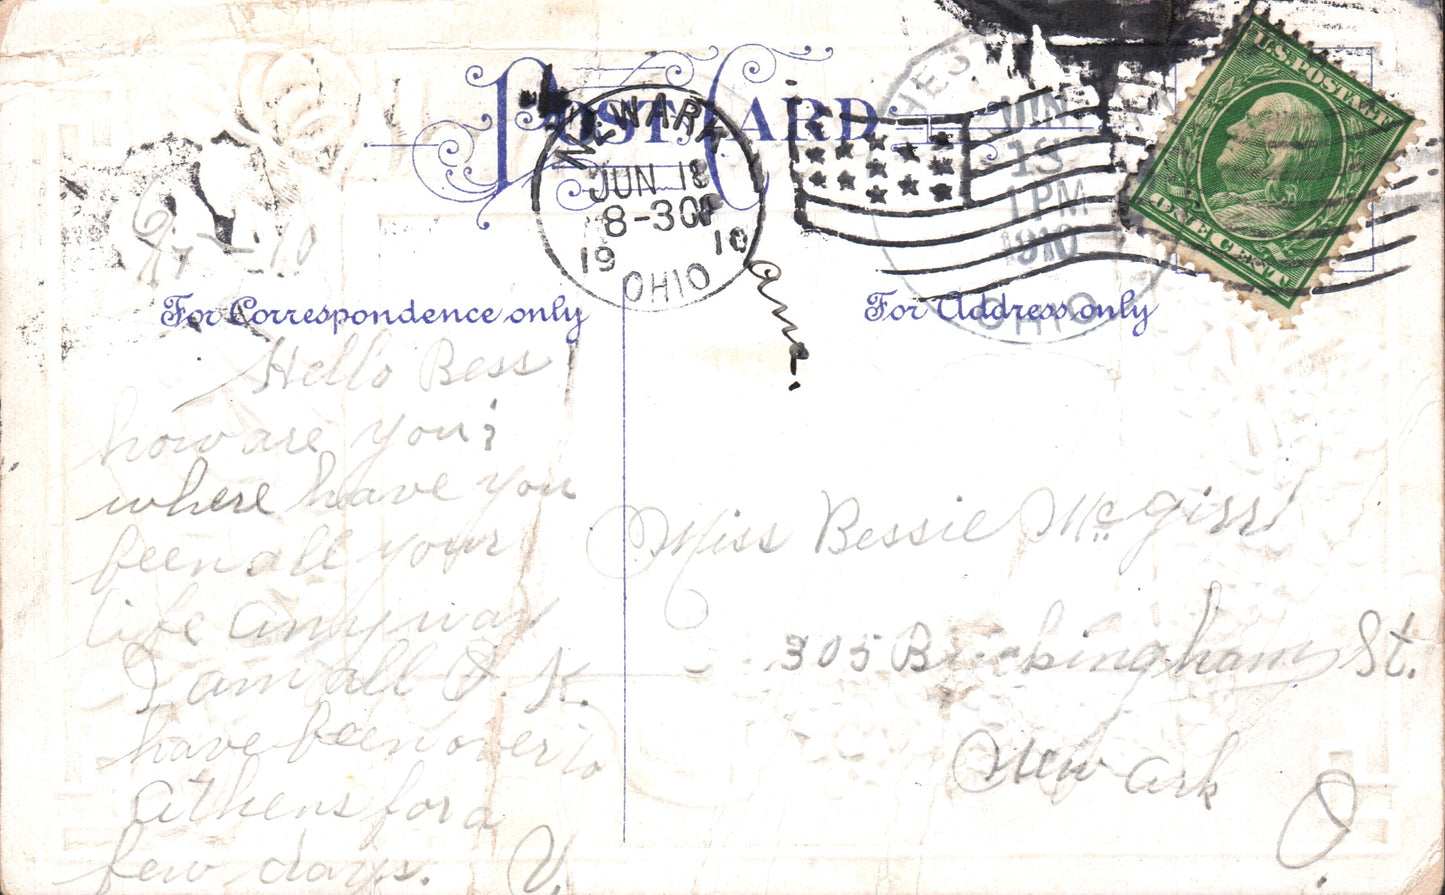 POST CARD
NEWARK
JUN 18
8-30P
19 10
OHIO
JUN
13
1 PM
1910
OHIO
U.S. POSTAGE
ONE CENT
6/17-10
For Correspondence only
For Address only
ans.
Hello Bess
how are you?
where have you
been all your
life anyway
I am all O. K.
have been over to
Athens for a
few days. V.
Miss Bessie McGirr
305 Buckingham St.
Newark
O.